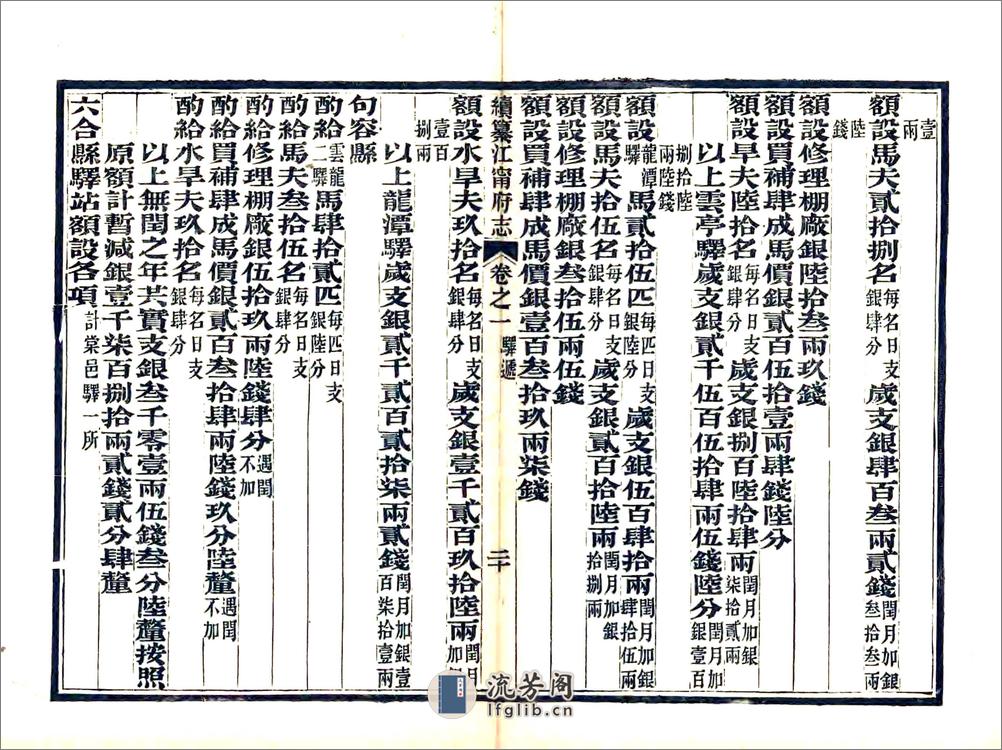 壹兩
額設馬夫貳拾捌名每名日支銀肆分 歲支銀肆百叁兩貳錢閏月加銀叁拾叁兩
陸錢
額設修理棚廠銀陸拾叁兩玖錢
額設買補肆成馬價銀貳百伍拾壹兩肆錢陸分
額設旱夫陸拾名每名日支銀肆分 歲支銀捌百陸拾肆兩閏月加銀柒拾貳兩
以上雲亭驛歲支銀貳千伍百伍拾肆兩伍錢陸分閏月加銀壹百
捌拾陸兩陸錢
額設龍潭驛馬貳拾伍匹每匹日支銀陸分 歲支銀伍百肆拾兩閏月加銀肆拾伍兩
額設馬夫拾伍名每名日支銀肆分 歲支銀貳百拾陸兩閏月加銀拾捌兩
額設修理棚廠銀叁拾伍兩伍錢
額設買補肆成馬價銀壹百叁拾玖兩柒錢
續纂江甯府志 卷之一 驛遞 二十
額設水旱夫玖拾名每名日支銀肆分 歲支銀壹千貳百玖拾陸兩閏月加銀
壹百捌兩
以上龍潭驛歲支銀貳千貳百貳拾柒兩貳錢閏月加銀壹百柒拾壹兩
句容縣
酌給雲龍二驛馬肆拾貳匹每匹日支銀陸分
酌給馬夫叁拾伍名每名日支銀肆分
酌給修理棚廠銀伍拾玖兩陸錢肆分遇閏不加
酌給買補肆成馬價銀貳百叁拾肆兩陸錢玖分陸釐遇閏不加
酌給水旱夫玖拾名每名日支銀肆分
以上無閏之年共實支銀叁千零壹兩伍錢叁分陸釐按照
原額計暫減銀壹千柒百捌拾兩貳錢貳分肆釐
六合縣驛站額設各項計棠邑驛一所
流芳阁
lfglib.cn